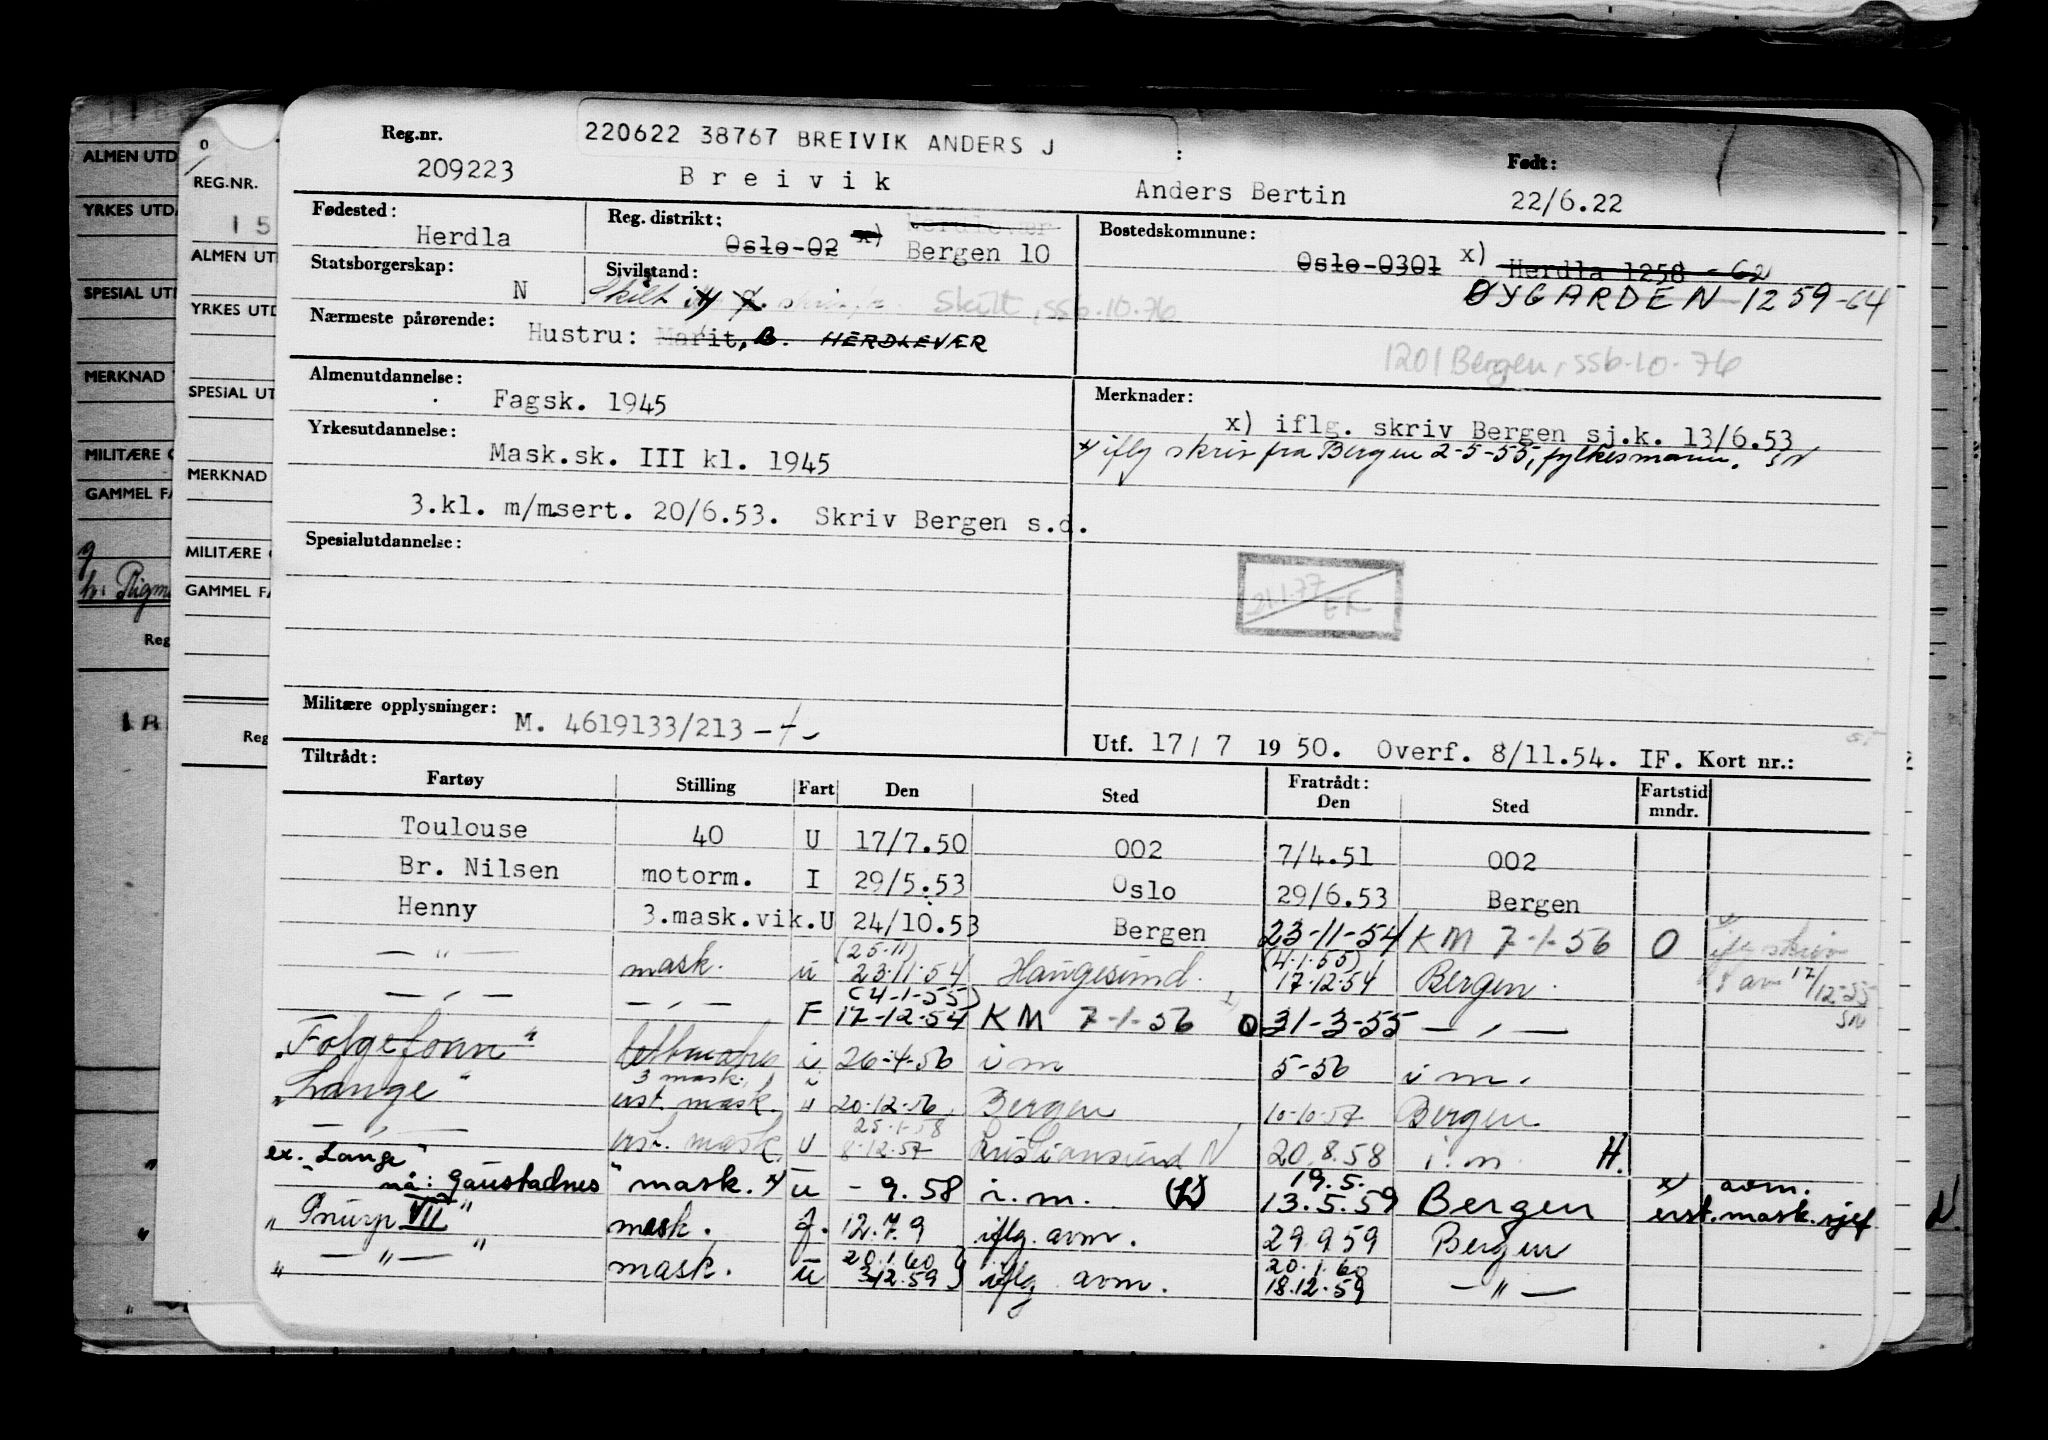 Reg.nr.
220622 38767 BREIVIK ANDERS J
Født:
209223 Breivik Anders Bertin 22/6.22
Fødested: Herdla
Reg. distrikt: Oslo-02 x) Herdlevær
Bergen 10
Bostedskommune: Oslo-0301 x) Herdla 1258 -62
ØYGARDEN-1259-64
Statsborgerskap: N
Sivilstand: Skilt
Skilt, ssb.10.76
Nærmeste pårørende: Hustru: Marit, B. HERDLEVÆR
1201 Bergen, ssb.10.76
Almenutdannelse: Fagsk. 1945
Merknader: x) iflg. skriv Bergen sj.k. 13/6.53
x) iflg skriv fra Bergen 2-5-55, fylkesmann. SN
Yrkesutdannelse: Mask.sk. III kl. 1945
3.kl. m/msert. 20/6.53. Skriv Bergen s.d.
Spesialutdannelse:
21.1.77 EK
Militære opplysninger: M. 4619133/213
Utf. 17/ 7 1950. Overf. 8/11.54. IF. Kort nr.:
Tiltrådt:
Fartøy Stilling Fart Den Sted Fratrådt: Den Sted Fartstid mndr.
Toulouse 40 U 17/7.50 002 7/4.51 002
Br. Nilsen motorm. I 29/5.53 Oslo 29/6.53 Bergen
Henny 3.mask.vik. U 24/10.53 Bergen 23-11-54 KM 7-1-56 O
— " — mask. u (25-11) 23.11.54 Haugesund. (4.1.55) 17.12.54 Bergen.
iflg skriv av 17/12-55 SN
— " — — " — F (4-1-55) 17-12-54 KM 7-1-56 O 31-3-55 — " —
"Folgefonn" i 26-4-56 i m 5-56 i m.
"Lange" 3 mask. u
erst. mask. u 20.12.56 Bergen 10-10-57 Bergen
— " — erst. mask. u 25.1.58 8.12.57 Kristiansund N 20.8.58 i.m. H.
ex. "Lange"
nå: Gaustadnes" mask. x) u - 9.58 i.m. 19.5. 13.5.59 Bergen x) avm. erst.mask.sjef
"Snurp VII" mask. f. 12.7.9 iflg. avm. 29.9.59 Bergen
" — " — " mask. u 20.1.60 3.12.59 iflg avm. 20.1.60 18.12.59 — " —
ALMEN UTD
YRKES UTD
SPESIAL UTD
MERKNAD
MILITÆRE O
GAMMEL FA
Reg
18
REG.NR.
15
ALMEN UT
YRKES UT
SPESIAL UT
MERKNAD
MILITÆRE O
GAMMEL FA
Reg